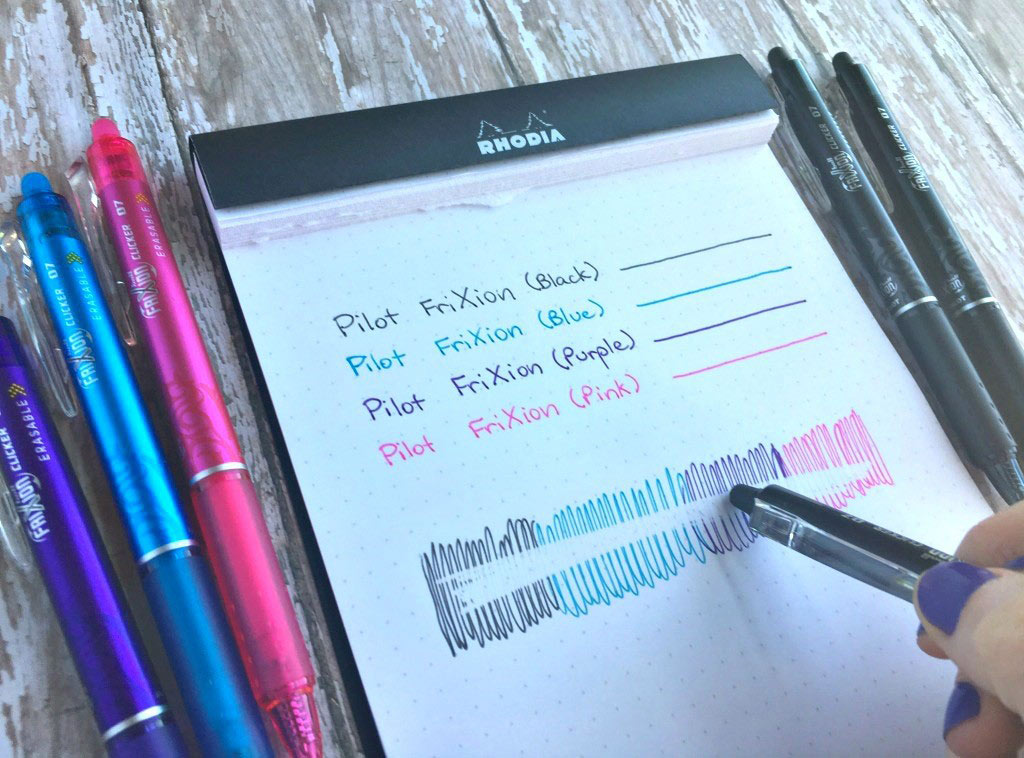 RHODIA
Pilot FriXion (Black)
Pilot FriXion (Blue)
Pilot FriXion (Purple)
Pilot FriXion (Pink)
FriXion CLICKER ERASABLE
FriXion CLICKER 07 ERASABLE
FriXion CLICKER 07 ERASABLE
FriXion CLICKER 07
FriXion CLICKER 07